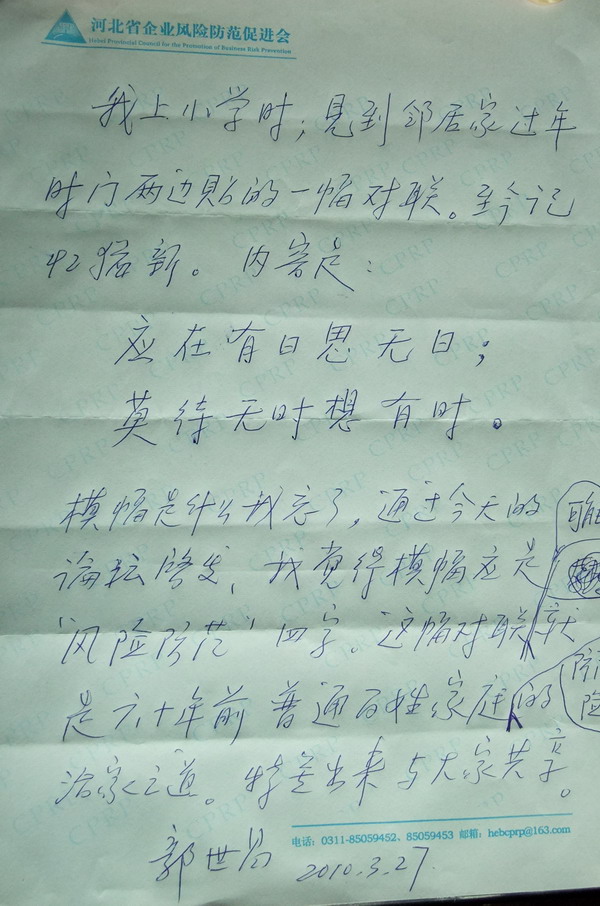 河北省企业风险防范促进会
Hebei Provincial Council for the Promotion of Business Risk Prevention
我上小学时,见到邻居家过年
时门两边贴的一幅对联。至今记
忆犹新。内容是:
应在有日思无日;
莫待无时想有时。
模幅是什么我忘了,通过今天的
论坛启发,我觉得模幅应是
可能
"风险防范"四字。这幅对联就
是六十年前普通百姓家庭的
防
险
治家之道。特差出来与大家共享。
电话:0311-85059452、85059453 邮箱:hebcprp@163.com
郭世昌 2010.3.27